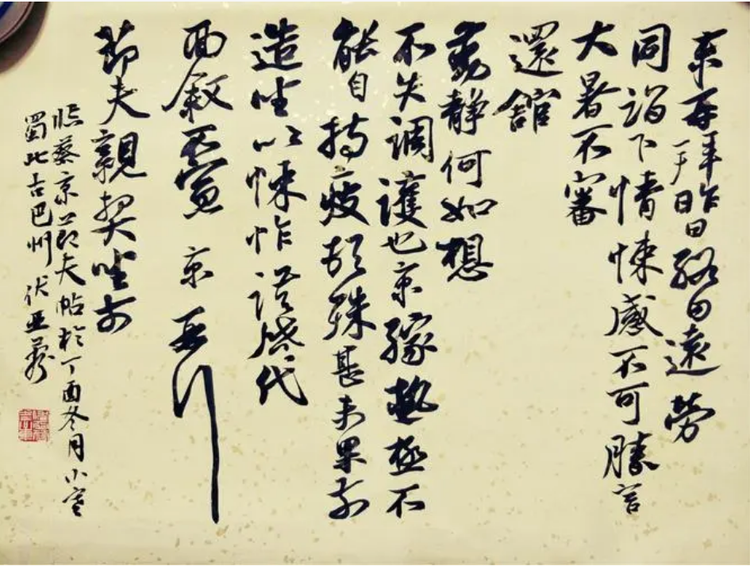 京再拜昨日終日遠勞
同詣下情悚感不可勝言
大暑不審
還館
動靜何如想
不失調護也京緣熱極不
能自持疲頓殊甚未果前
造坐次悚怍謹啟代
面敘不宣京再拜
節夫親契坐前
臨蔡京節夫帖於丁酉冬月小寒
蜀北古巴州伏亞